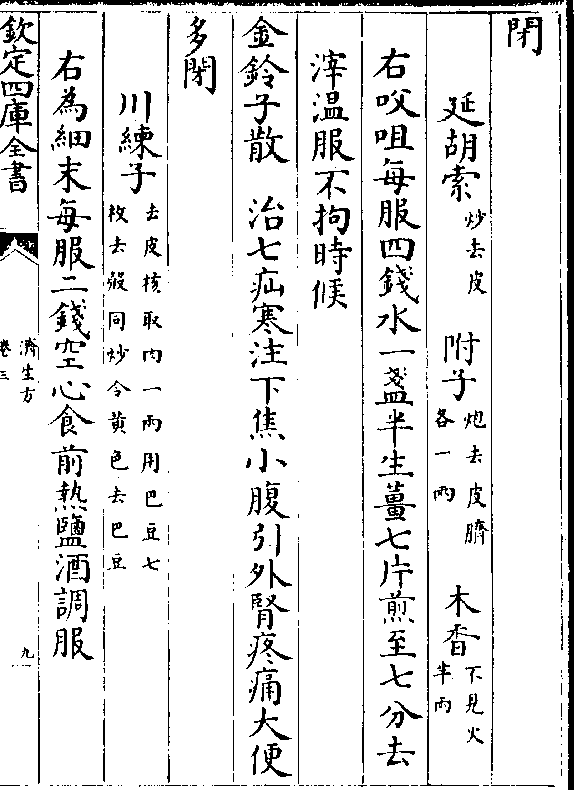 閉
延胡索炒去皮 附子炮去�臍各一兩 木香不見火半兩
右㕮咀每服四錢水一盞半生薑七片煎至七分去
滓温服不拘時候
金鈴子散 治七疝寒注下焦小腹引外腎疼痛大便
多閉
川練子去皮核取肉一兩用巴豆七枚去殻同炒令黄色去巴豆
右為細末每服二錢空心食前熱鹽酒調服
欽定四庫全書
濟生方
卷三
九